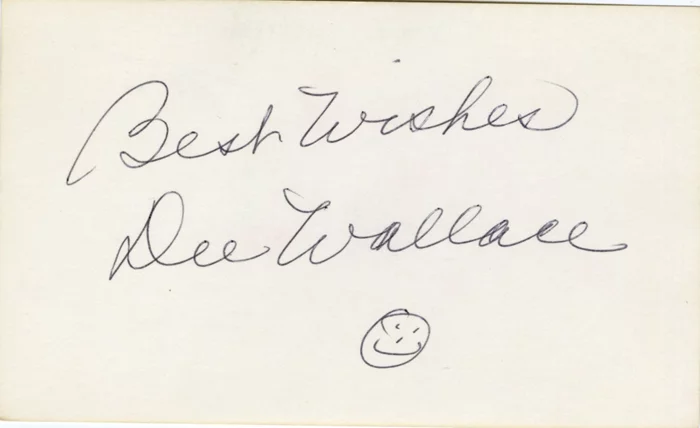 Best Wishes
Dee Wallace